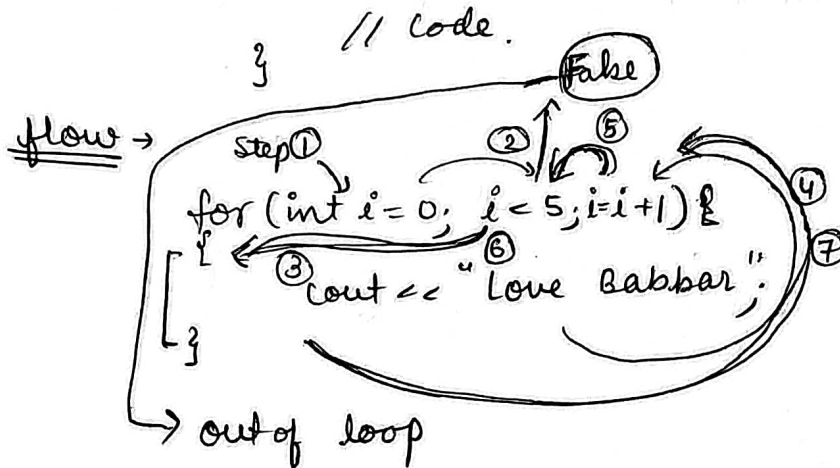 // Code.
}
False
flow →
Step ①
②
⑤
④
for (int i = 0; i < 5; i=i+1) {
{
③
⑥
⑦
cout << "Love Babbar";
}
out of loop